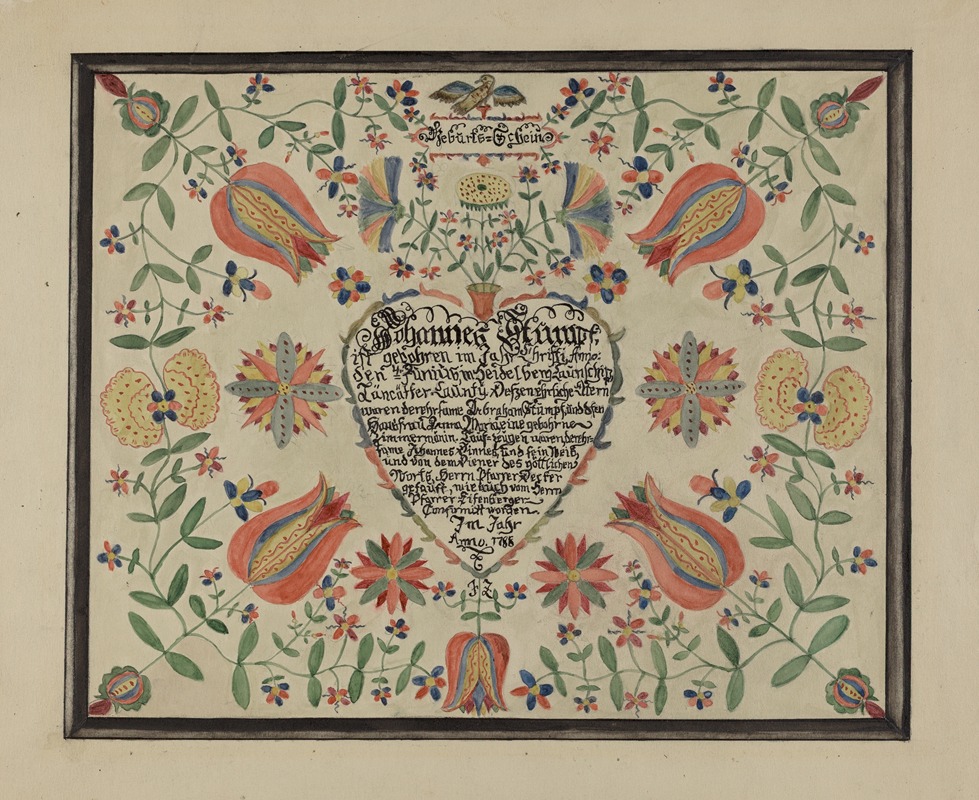 Geburts=Schein
Johannes Stumpf,
ist gebohren im Jahr Christi, Anno:
den 4ten Junius in Heidelberg Taunschip,
Läncäster-Caunty. Deszen ehrliche Eltern
waren der ehrsame Abraham Stumpf, und deßen
Hausfrau Anna Maria, eine gebohrne
Zimmermänin. Tauf-zeugen waren der ehr-
same Johannes und sein Weib,
und von dem Diener des göttlichen
Worts, Herrn Pfarrer Decker
getauft, wie auch vom Herrn
Pfarrer Eisenberger
Confirmirt worden.
Im Jahr
Anno. 1788